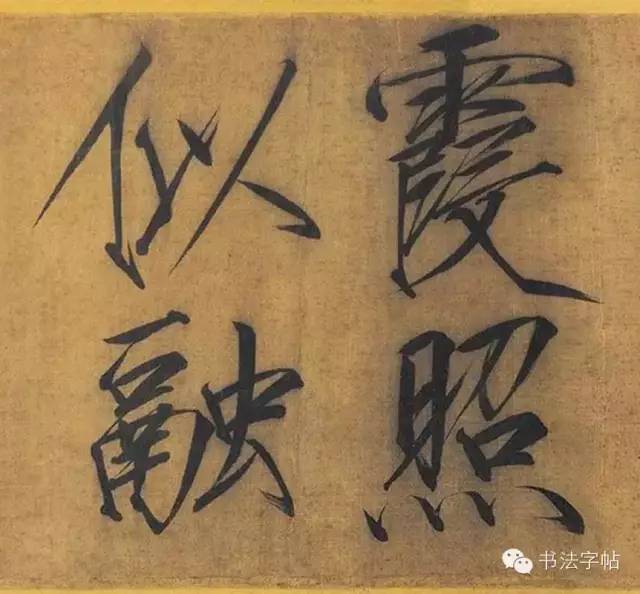 霞照
似融
书法字帖